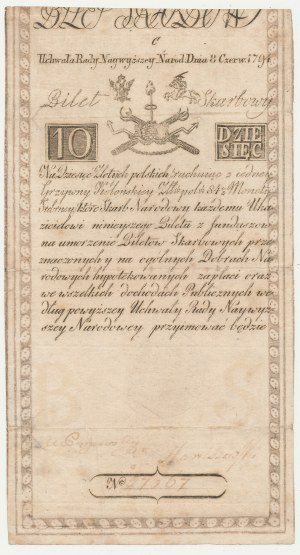 C
Uchwałą Rady Naywyższey Narod: Dnia 8 Czerw: 1794
Bilet Skarbowy
10 DZIE
SIĘĆ
Na Dziesięć Złotych polskich rachuiąc z iedney
Grzywny Kolońskiey Złt: pols: 84½ Monetą
Srebrną, które Skarb Narodowy każdemu Oka-
zicielowi ninieyszego Biletu z funduszow
na umorzenie Biletów Skarbowych prze-
znaczonych y na ogólnych Dobrach Na-
rodowych hypotekowanych zapłaci oraz
we wszelkich dochodach Publicznych we-
dług powyższey Uchwały Rady Naywyż-
szey Narodowey przyimować będzie
No 27267